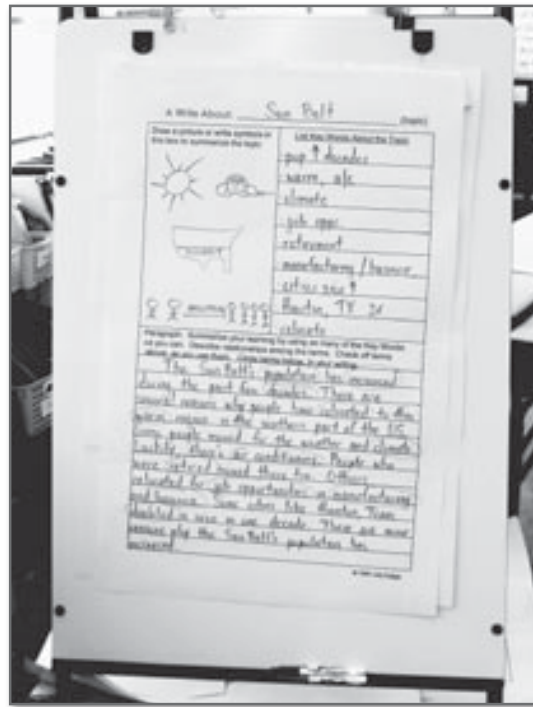 A Write About: Sun Belt (topic)
Draw a picture or write symbols in
this box to summarize the topic.
List Key Words About the Topic
pop ↑ decades
warm, a/c
climate
job opp.
retirement
manufacturing / business
cities size ↑
Houston, TX 2x
relocate
Paragraph: Summarize your learning by using as many of the Key Words
as you can. Describe relationships among the terms. Check off terms
above as you use them. Circle terms below in your writing.
The Sun Belt's population has increased
during the past few decades. There are
several reasons why people have relocated to this
warm region in the southern part of the U.S.
Some people moved for the weather and climate.
Luckily, there's air conditioning. People who
were retired moved there too. Others
relocated for job opportunities in manufacturing
and business. Some cities like Houston, Texas
doubled in size in one decade. These are some
reasons why the Sun Belt's population has
increased.